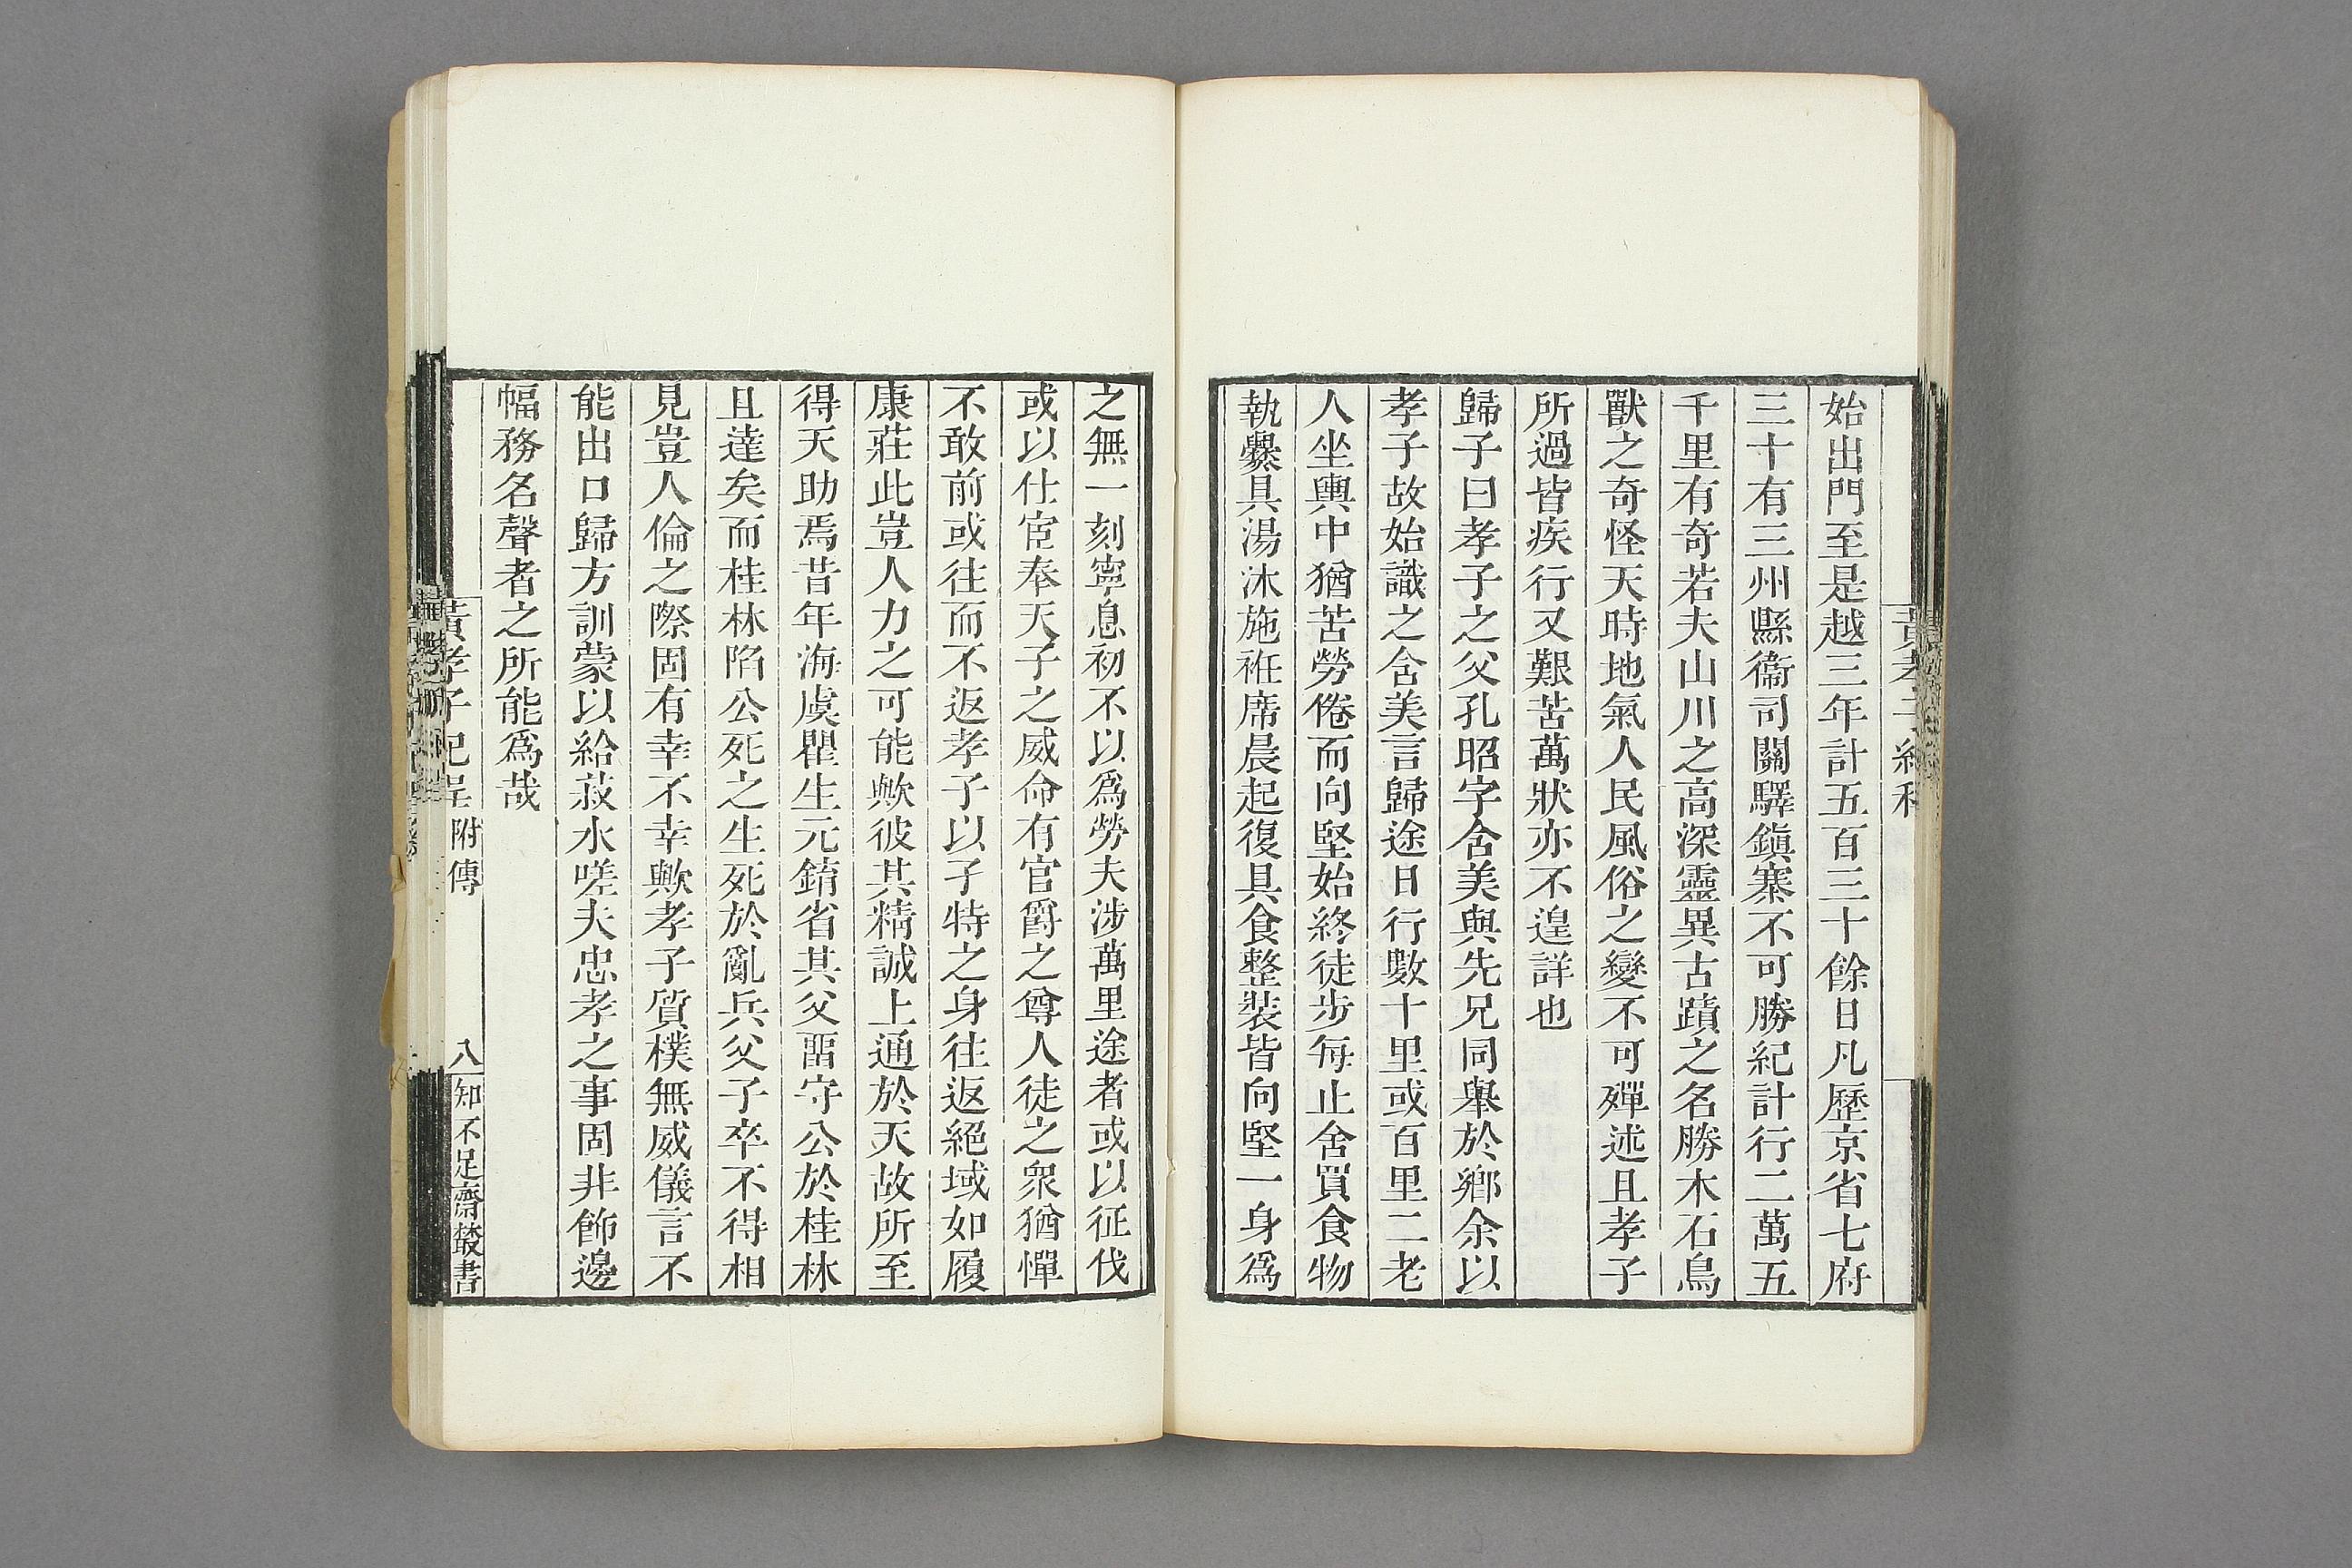 始出門至是越三年計五百三十餘日凡歷京省七府
三十有三州縣衞司關驛鎮寨不可勝紀計行二萬五
千里有奇若夫山川之高深靈異古蹟之名勝木石鳥
獸之奇怪天時地氣人民風俗之變不可殫述且孝子
所過皆疾行又艱苦萬狀亦不遑詳也
歸子曰孝子之父孔昭字含美與先兄同舉於鄉余以
孝子故始識之含美言歸途日行數十里或百里二老
人坐輿中猶苦勞倦而向堅始終徒步每止舍買食物
執爨具湯沐施袵席晨起復具食整裝皆向堅一身爲
之無一刻寧息初不以爲勞夫涉萬里途者或以征伐
或以仕宦奉天子之威命有官爵之尊人徒之衆猶憚
不敢前或往而不返孝子以孑特之身往返絕域如履
康莊此豈人力之可能歟彼其精誠上通於天故所至
得天助焉昔年海虞瞿生元錥省其父畱守公於桂林
且達矣而桂林陷公死之生死於亂兵父子卒不得相
見豈人倫之際固有幸不幸歟孝子質樸無威儀言不
能出口歸方訓蒙以給菽水嗟夫忠孝之事固非飾邊
幅務名聲者之所能爲哉
黃孝子紀程 附傳 八 知不足齋叢書